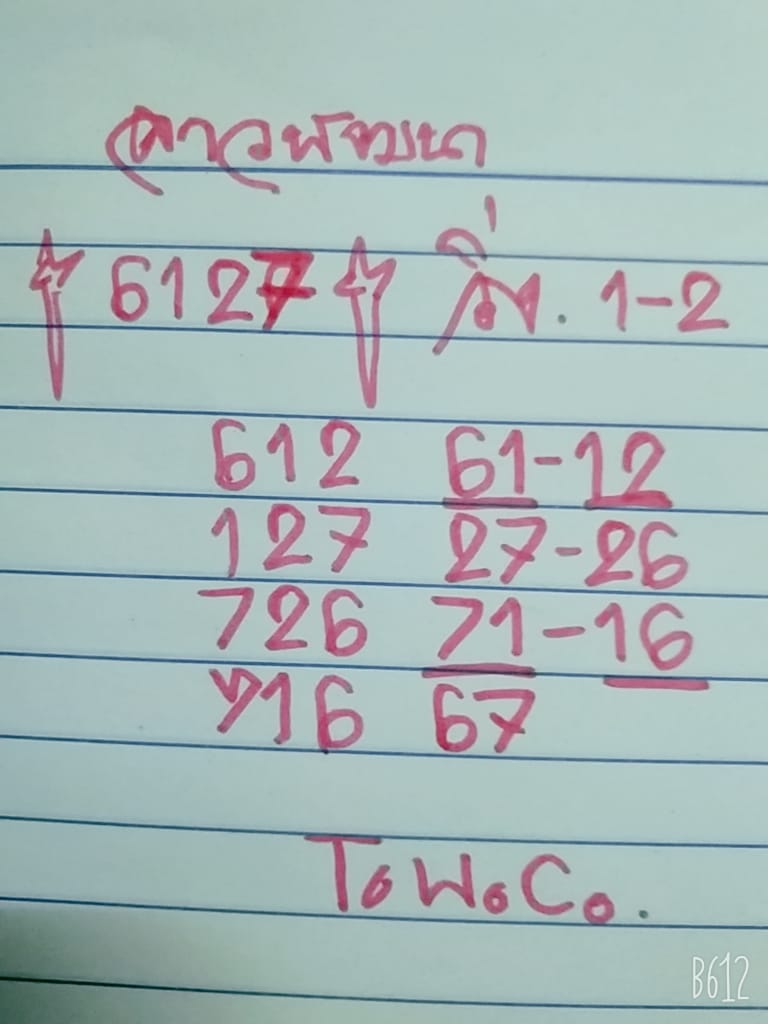 ดาวพัฒนา
6127 วิ่ง. 1-2
612 61-12
127 27-26
726 71-16
716 67
ToWoCo.
B612